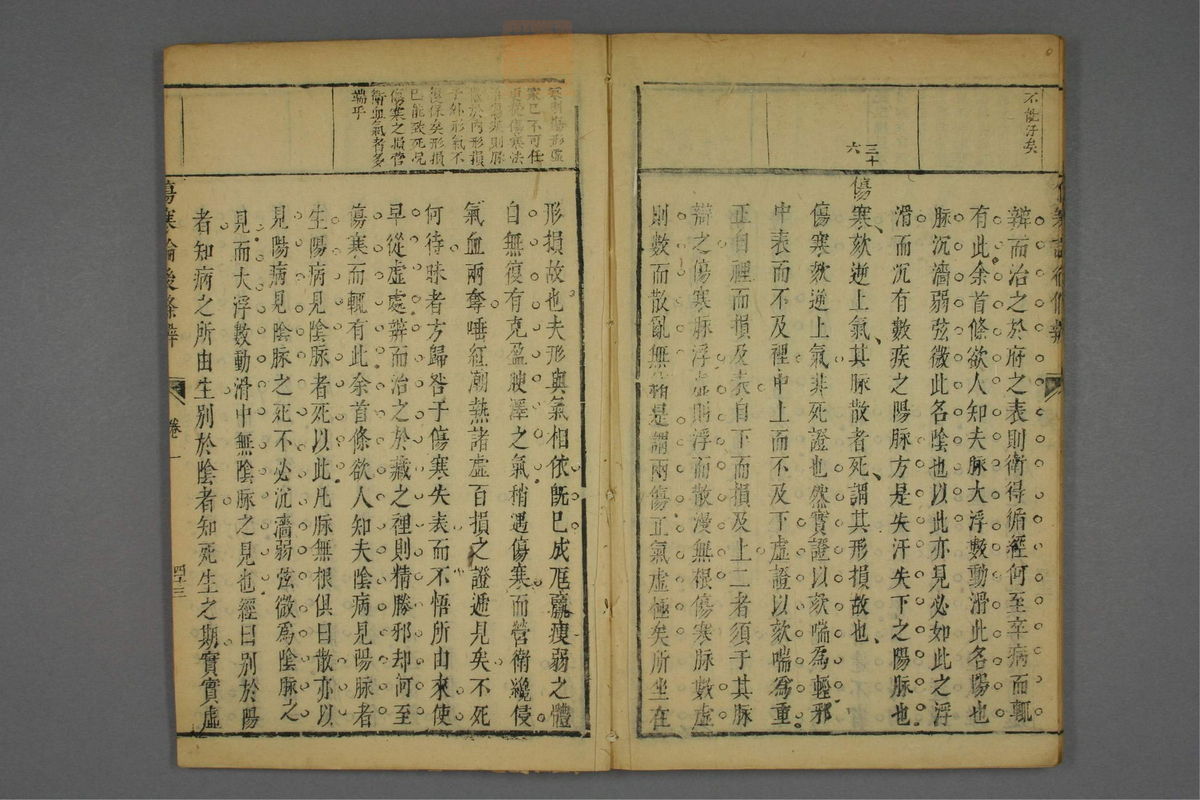 不能汗矣
三十六
辨而治之於府之表則衛得循經何至卒病而輒
有此余首條欲人知夫脉大浮數動滑此名陽也
脉沉濇弱弦微此名陰也以此亦見必如此之浮
滑而沉有數疾之陽脉方是失汗失下之陽脉也
傷寒欬逆上氣其脉散者死謂其形損故也
傷寒欬逆上氣非死證也然實證以欬喘為輕邪
中表而不及裡中上而不及下虛證以欬喘為重
正自裡而損及表自下而損及上二者須于其脉
辯之傷寒脉浮虛則浮而散漫無根傷寒脉數虛
則數而散亂無緒是謂兩傷正氣虛極矣所坐在
寒已不可任
子外形氣不
復保矣形損
已能致死况
傷寒之損營
衛血氣者多
端乎
形損故也夫形與氣相依旣已成尫羸瘦弱之體
自無復有克盈腴澤之氣稍遇傷寒而營衛纔侵
氣血兩奪唾紅潮熱諸虛百損之證逓見矣不死
何待昧者方歸咎于傷寒失表而不悟所由來使
早從虛處辨而治之於藏之裡則精勝邪却何至
傷寒而輒有此余首條欲人知夫陰病見陽脉者
生陽病見陰脉者死以此凡脉無根俱曰散亦以
見陽病見陰脉之死不必沉濇弱弦微為陰脉之
見而大浮數動滑中無陰脉之見也經曰別於陽
者知病之所由生別於陰者知死生之期實實虛
傷寒論後條辨
卷一
四十三